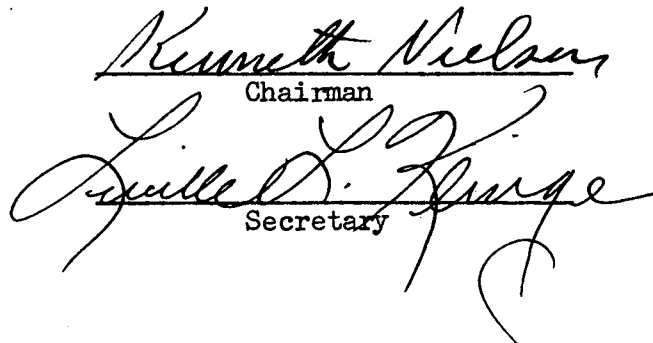 Kenneth Nielsen
Chairman
Lucille L.
Secretary